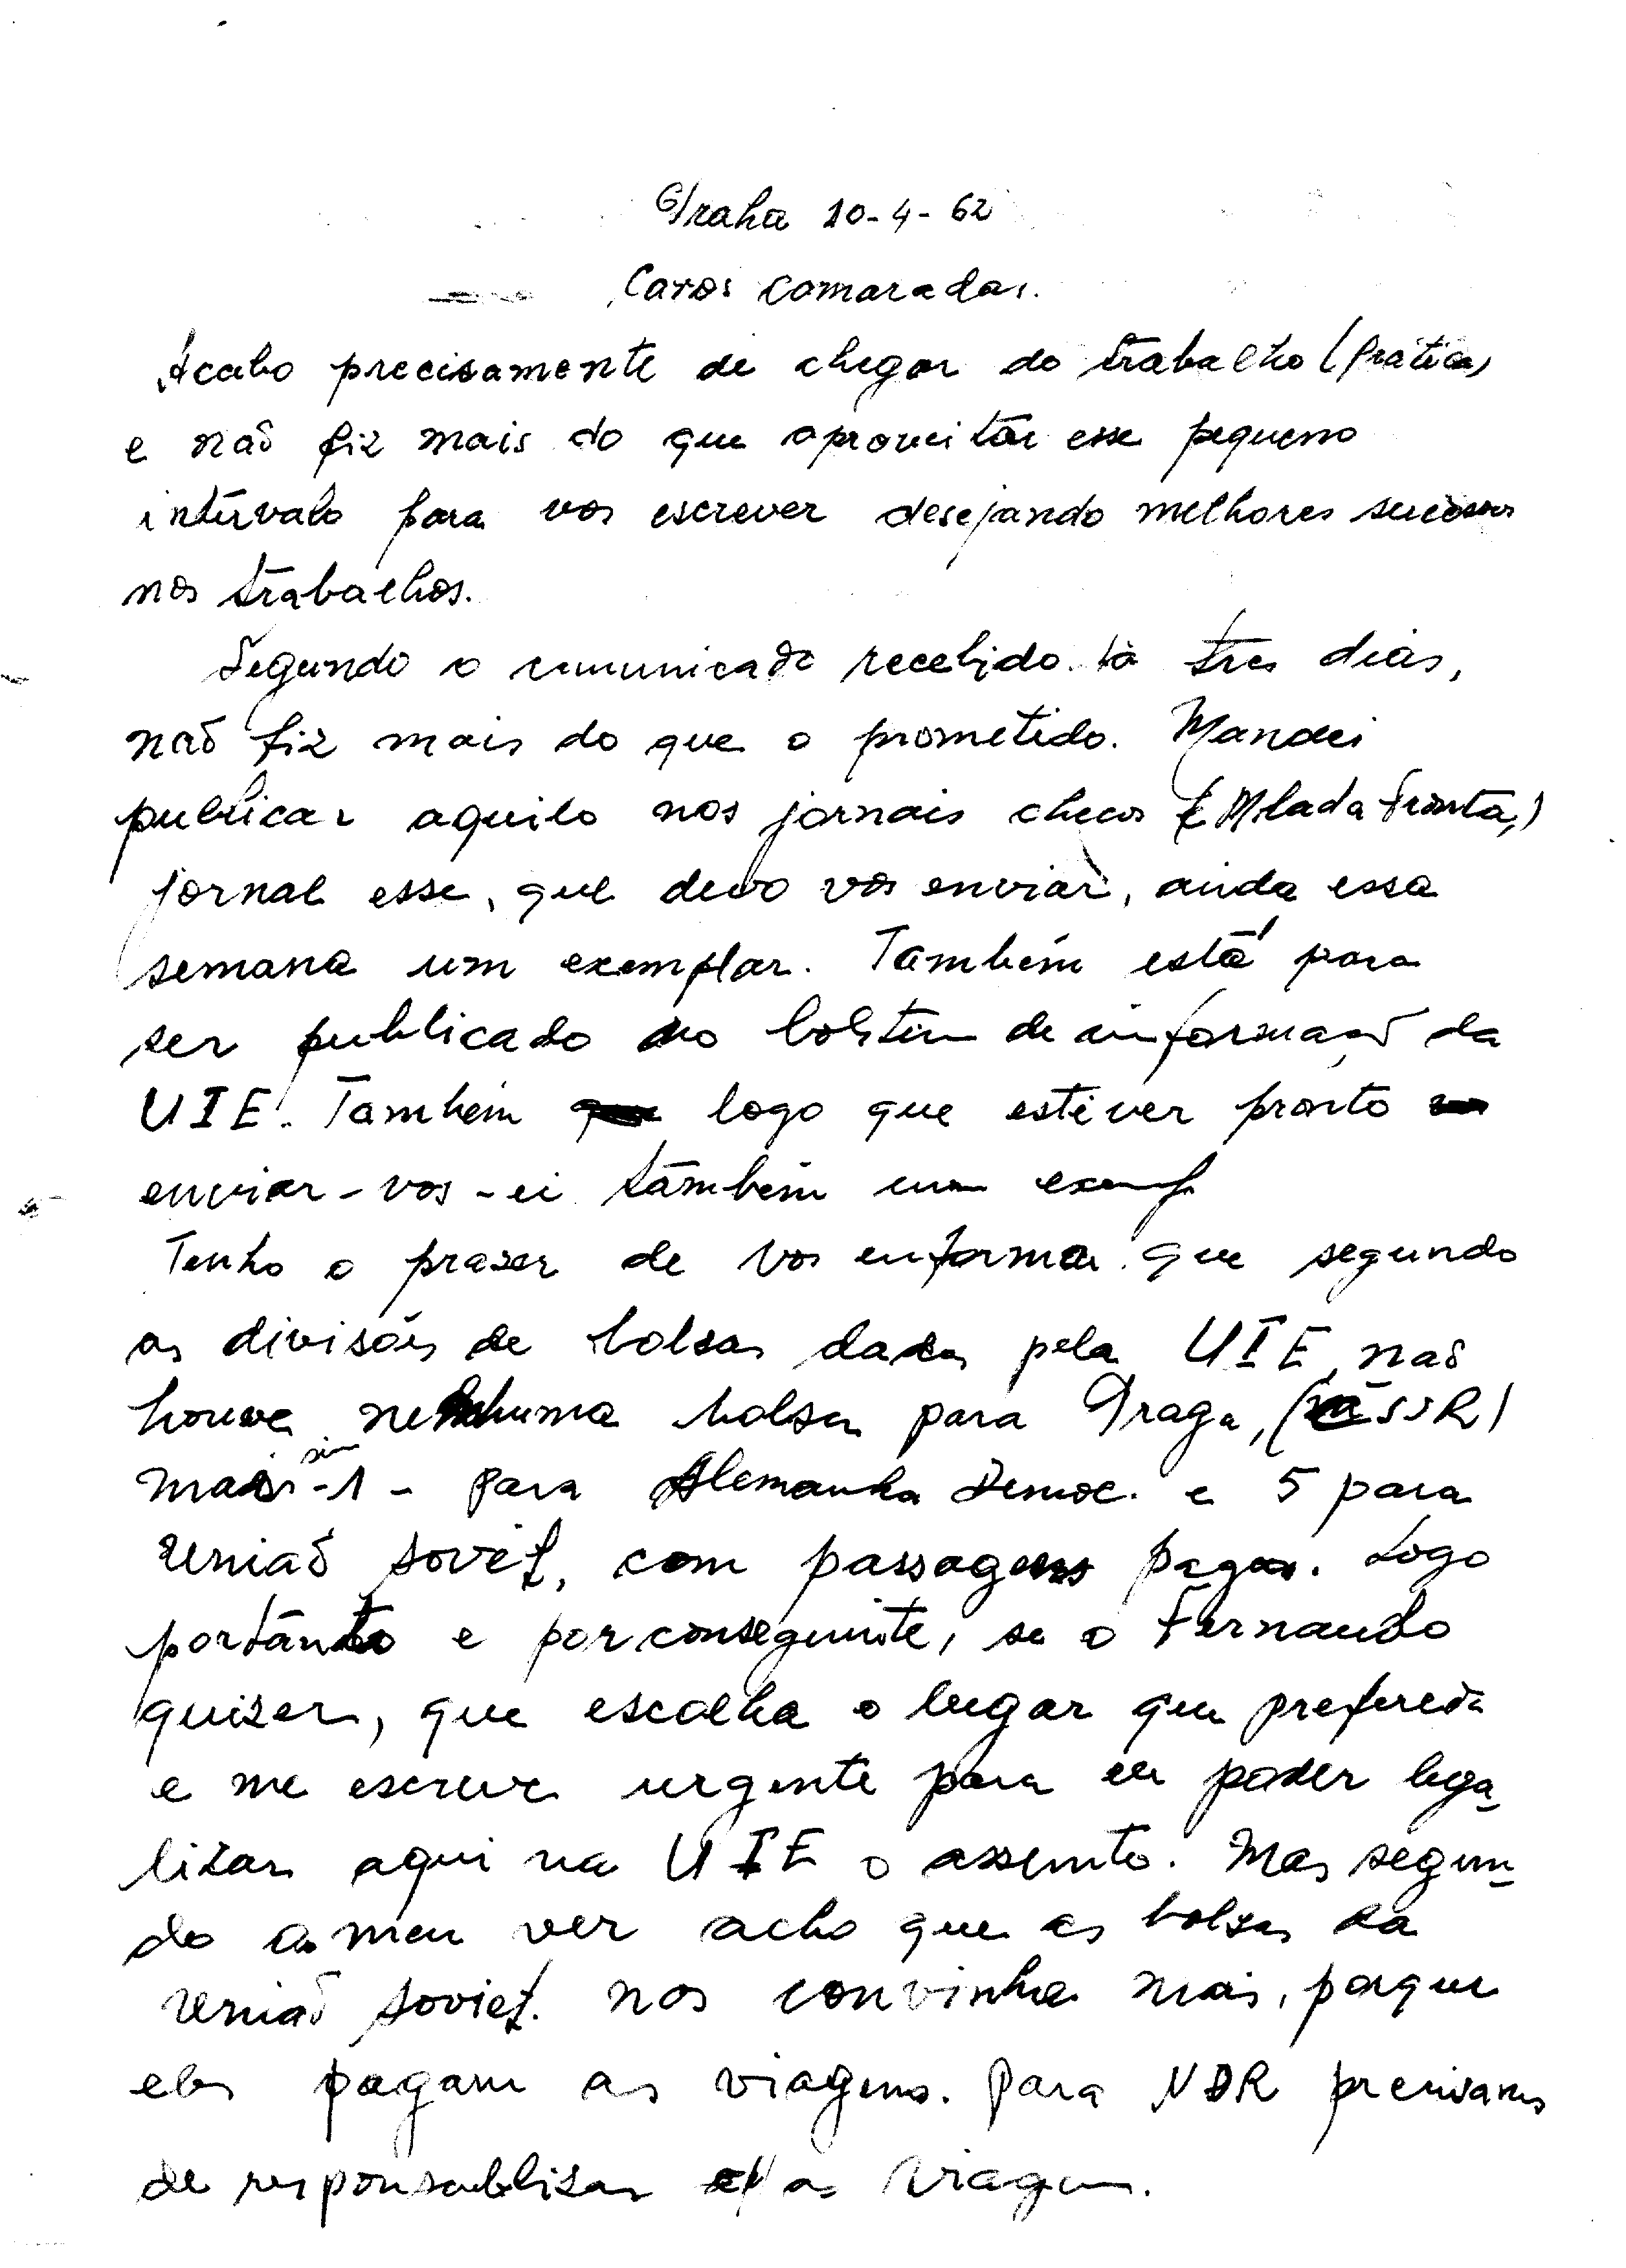 Praha 10-4-62
Caros camaradas.
Acabo precisamente de chegar do trabalho (prática)
e naõ fiz mais do que aproveitar esse pequeno
intervalo para vos escrever desejando melhores sucessos
nos trabalhos.
Segundo o comunicado recebido há tres dias,
naõ fiz mais do que o prometido. Mandei
publicar aquilo nos jornais checos (Mlada Fronta,)
jornal esse, que devo vos enviar, ainda essa
semana um exemplar. Também está para
ser publicado no boletim de informaçaõ da
UIE. Também logo que estiver pronto
enviar-vos-ei também um exemp
Tenho o praser de vos enformar que segundo
as divisões de bolsas dadas pela UIE, naõ
houve nenhuma bolsa para Praga, (ČSSR)
mais sim -1- para Alemanha Democ. e 5 para
Uniaõ Soviet, com passagens pagas. Logo
portanto e por conseguinte, se o Fernando
quizer, que escolha o lugar que prefereia
e me escreve urgente para eu poder lega-
lizar aqui na UIE o assunto. Mas segun-
do a meu ver acho que as bolsas da
Uniaõ Soviet. nos convinha mais, porque
eles pagam as viagens. Para NDR precisamos
de responsablizar as viagens.